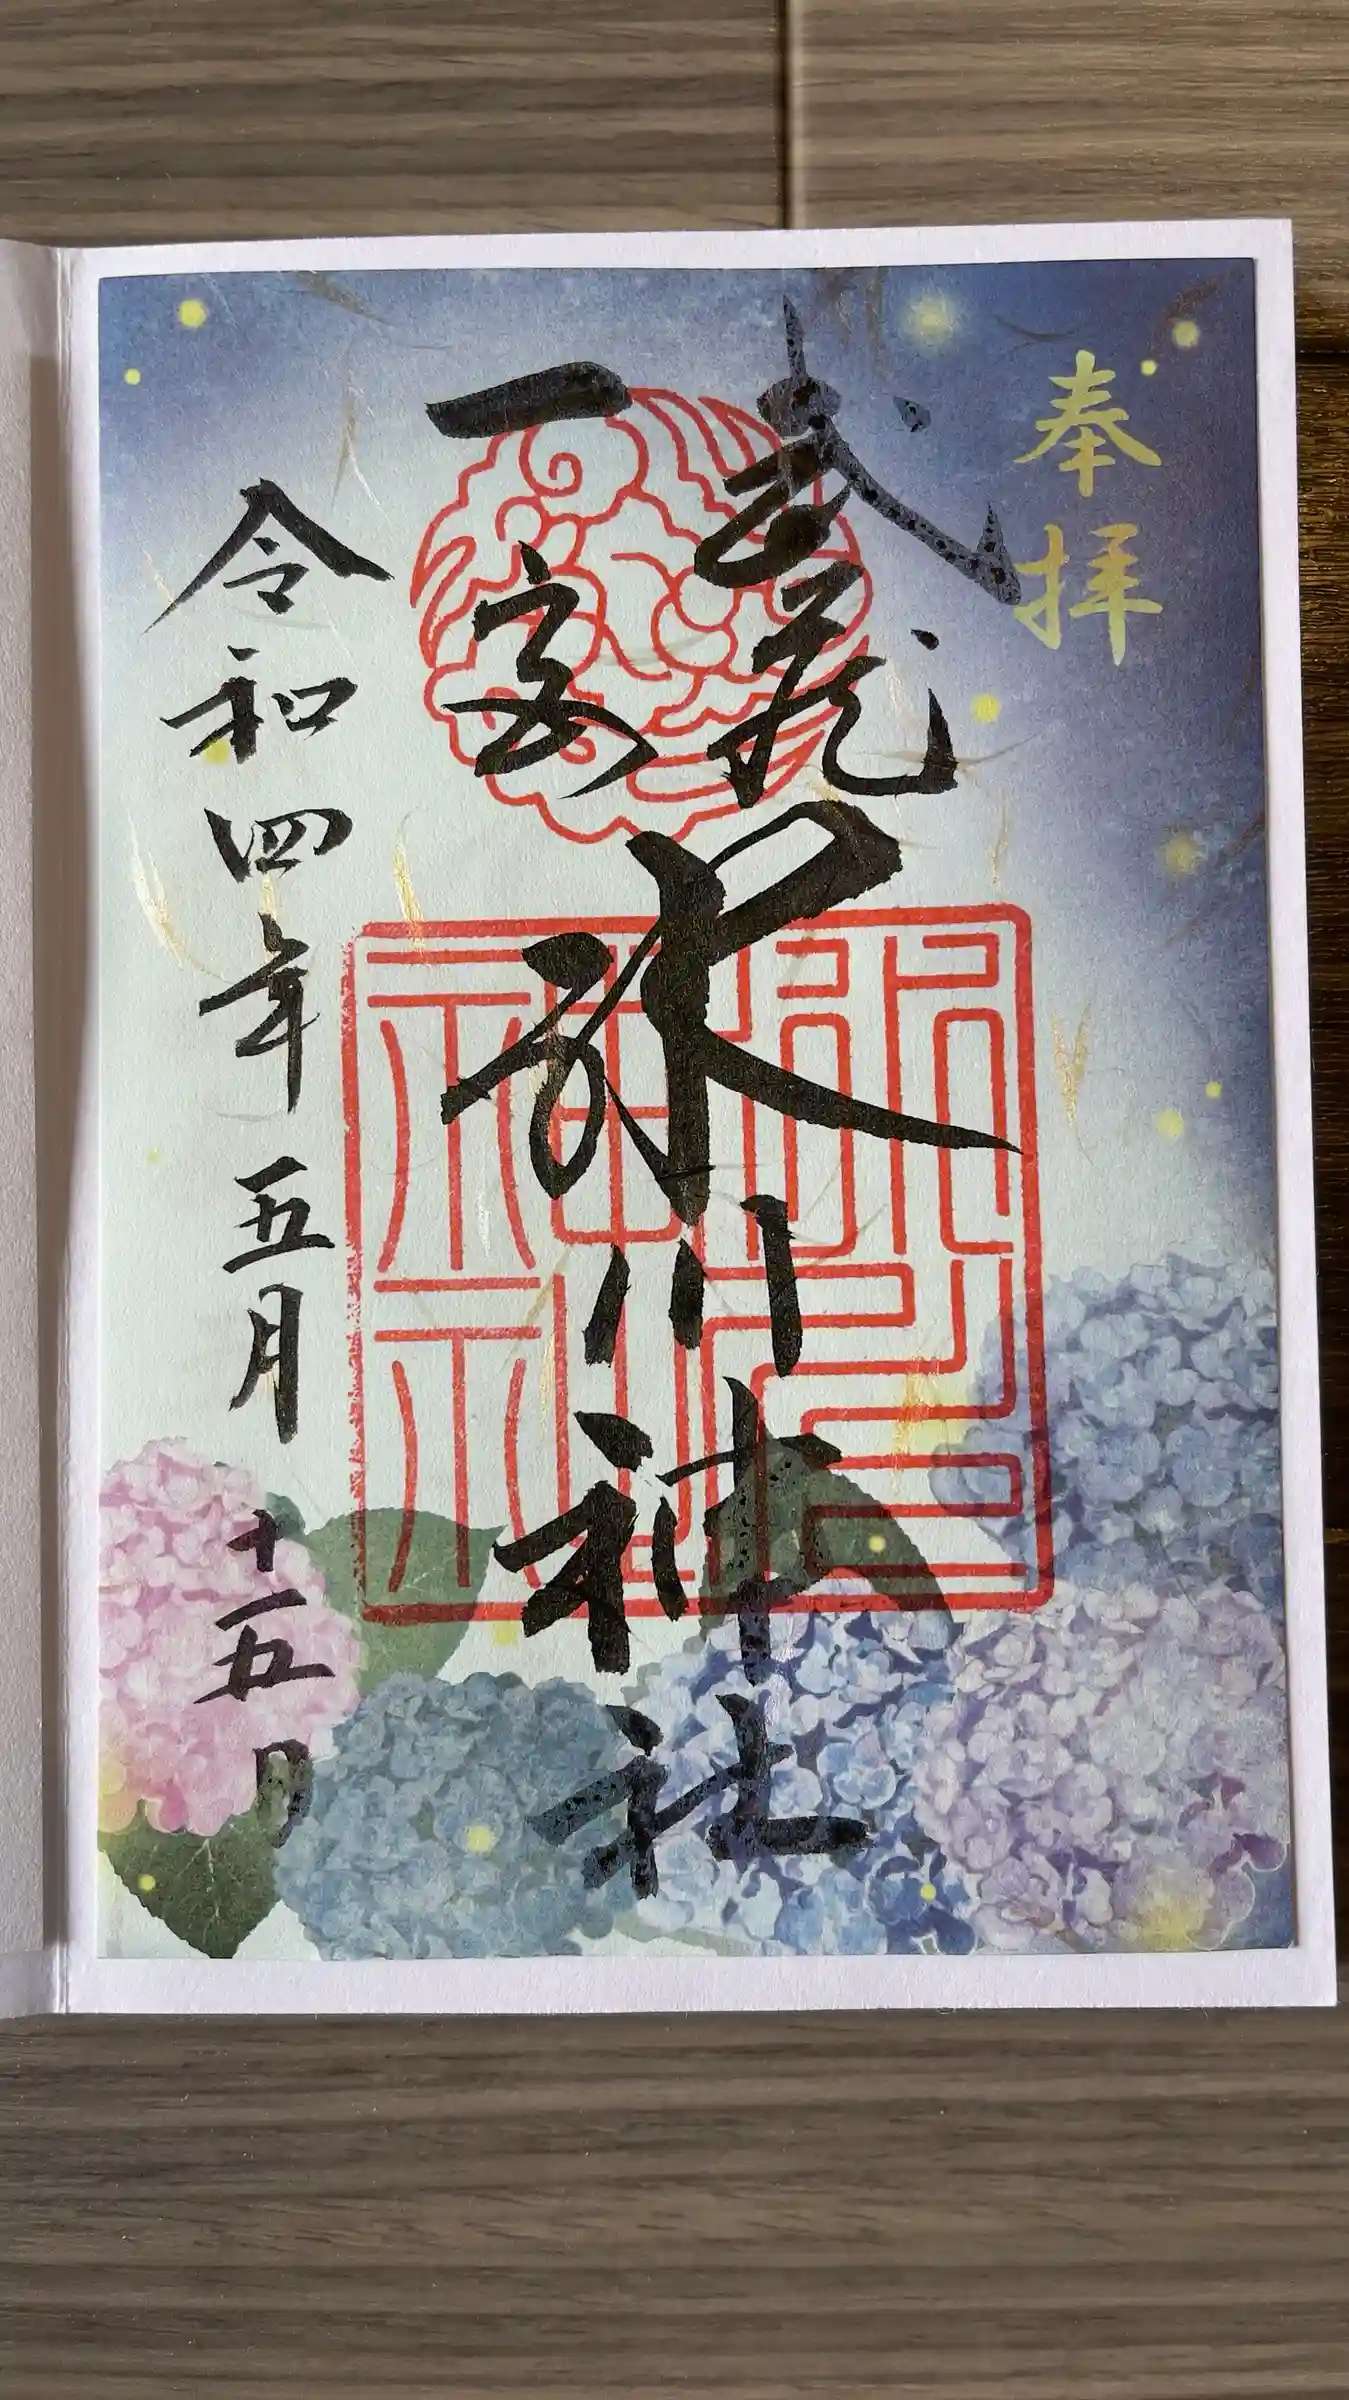 奉拝
武蔵
一宮
氷川神社
令和四年五月十五日